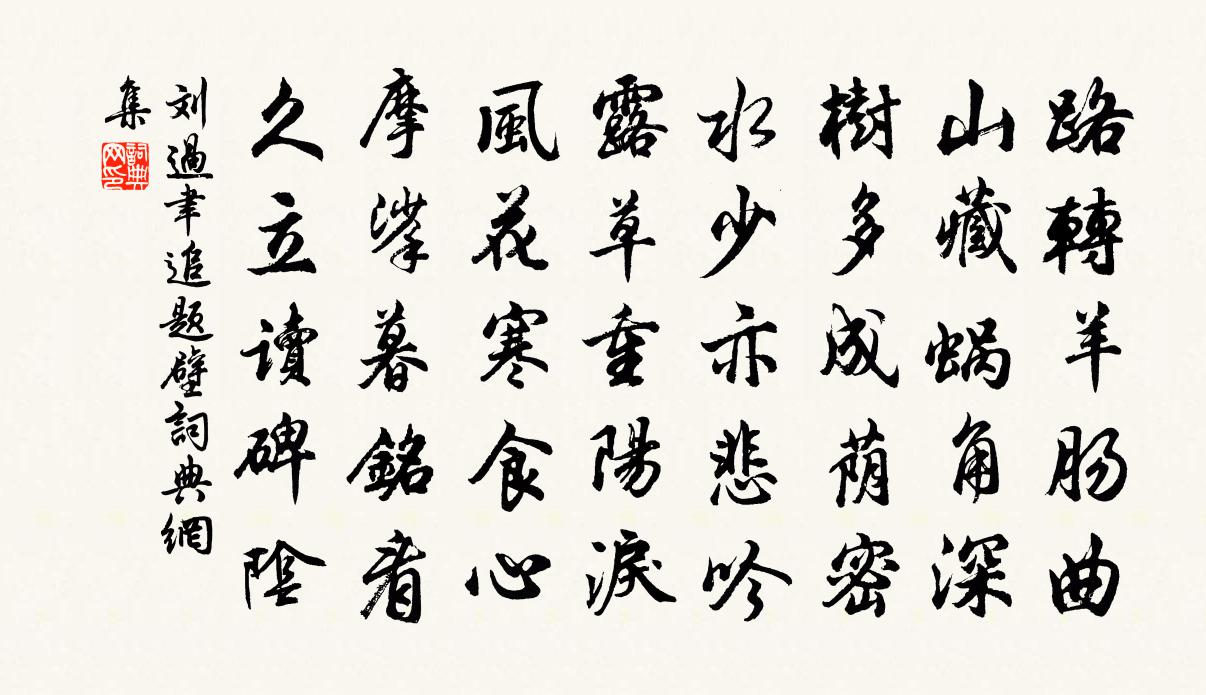 路轉羊肠曲
山藏蜗角深
樹多成荫密
水少亦悲吟
露草重陽淚
風花寒食心
摩挲暮銘者
久立读碑陰
刘過聿追题壁詞典網
集
詞典
网印